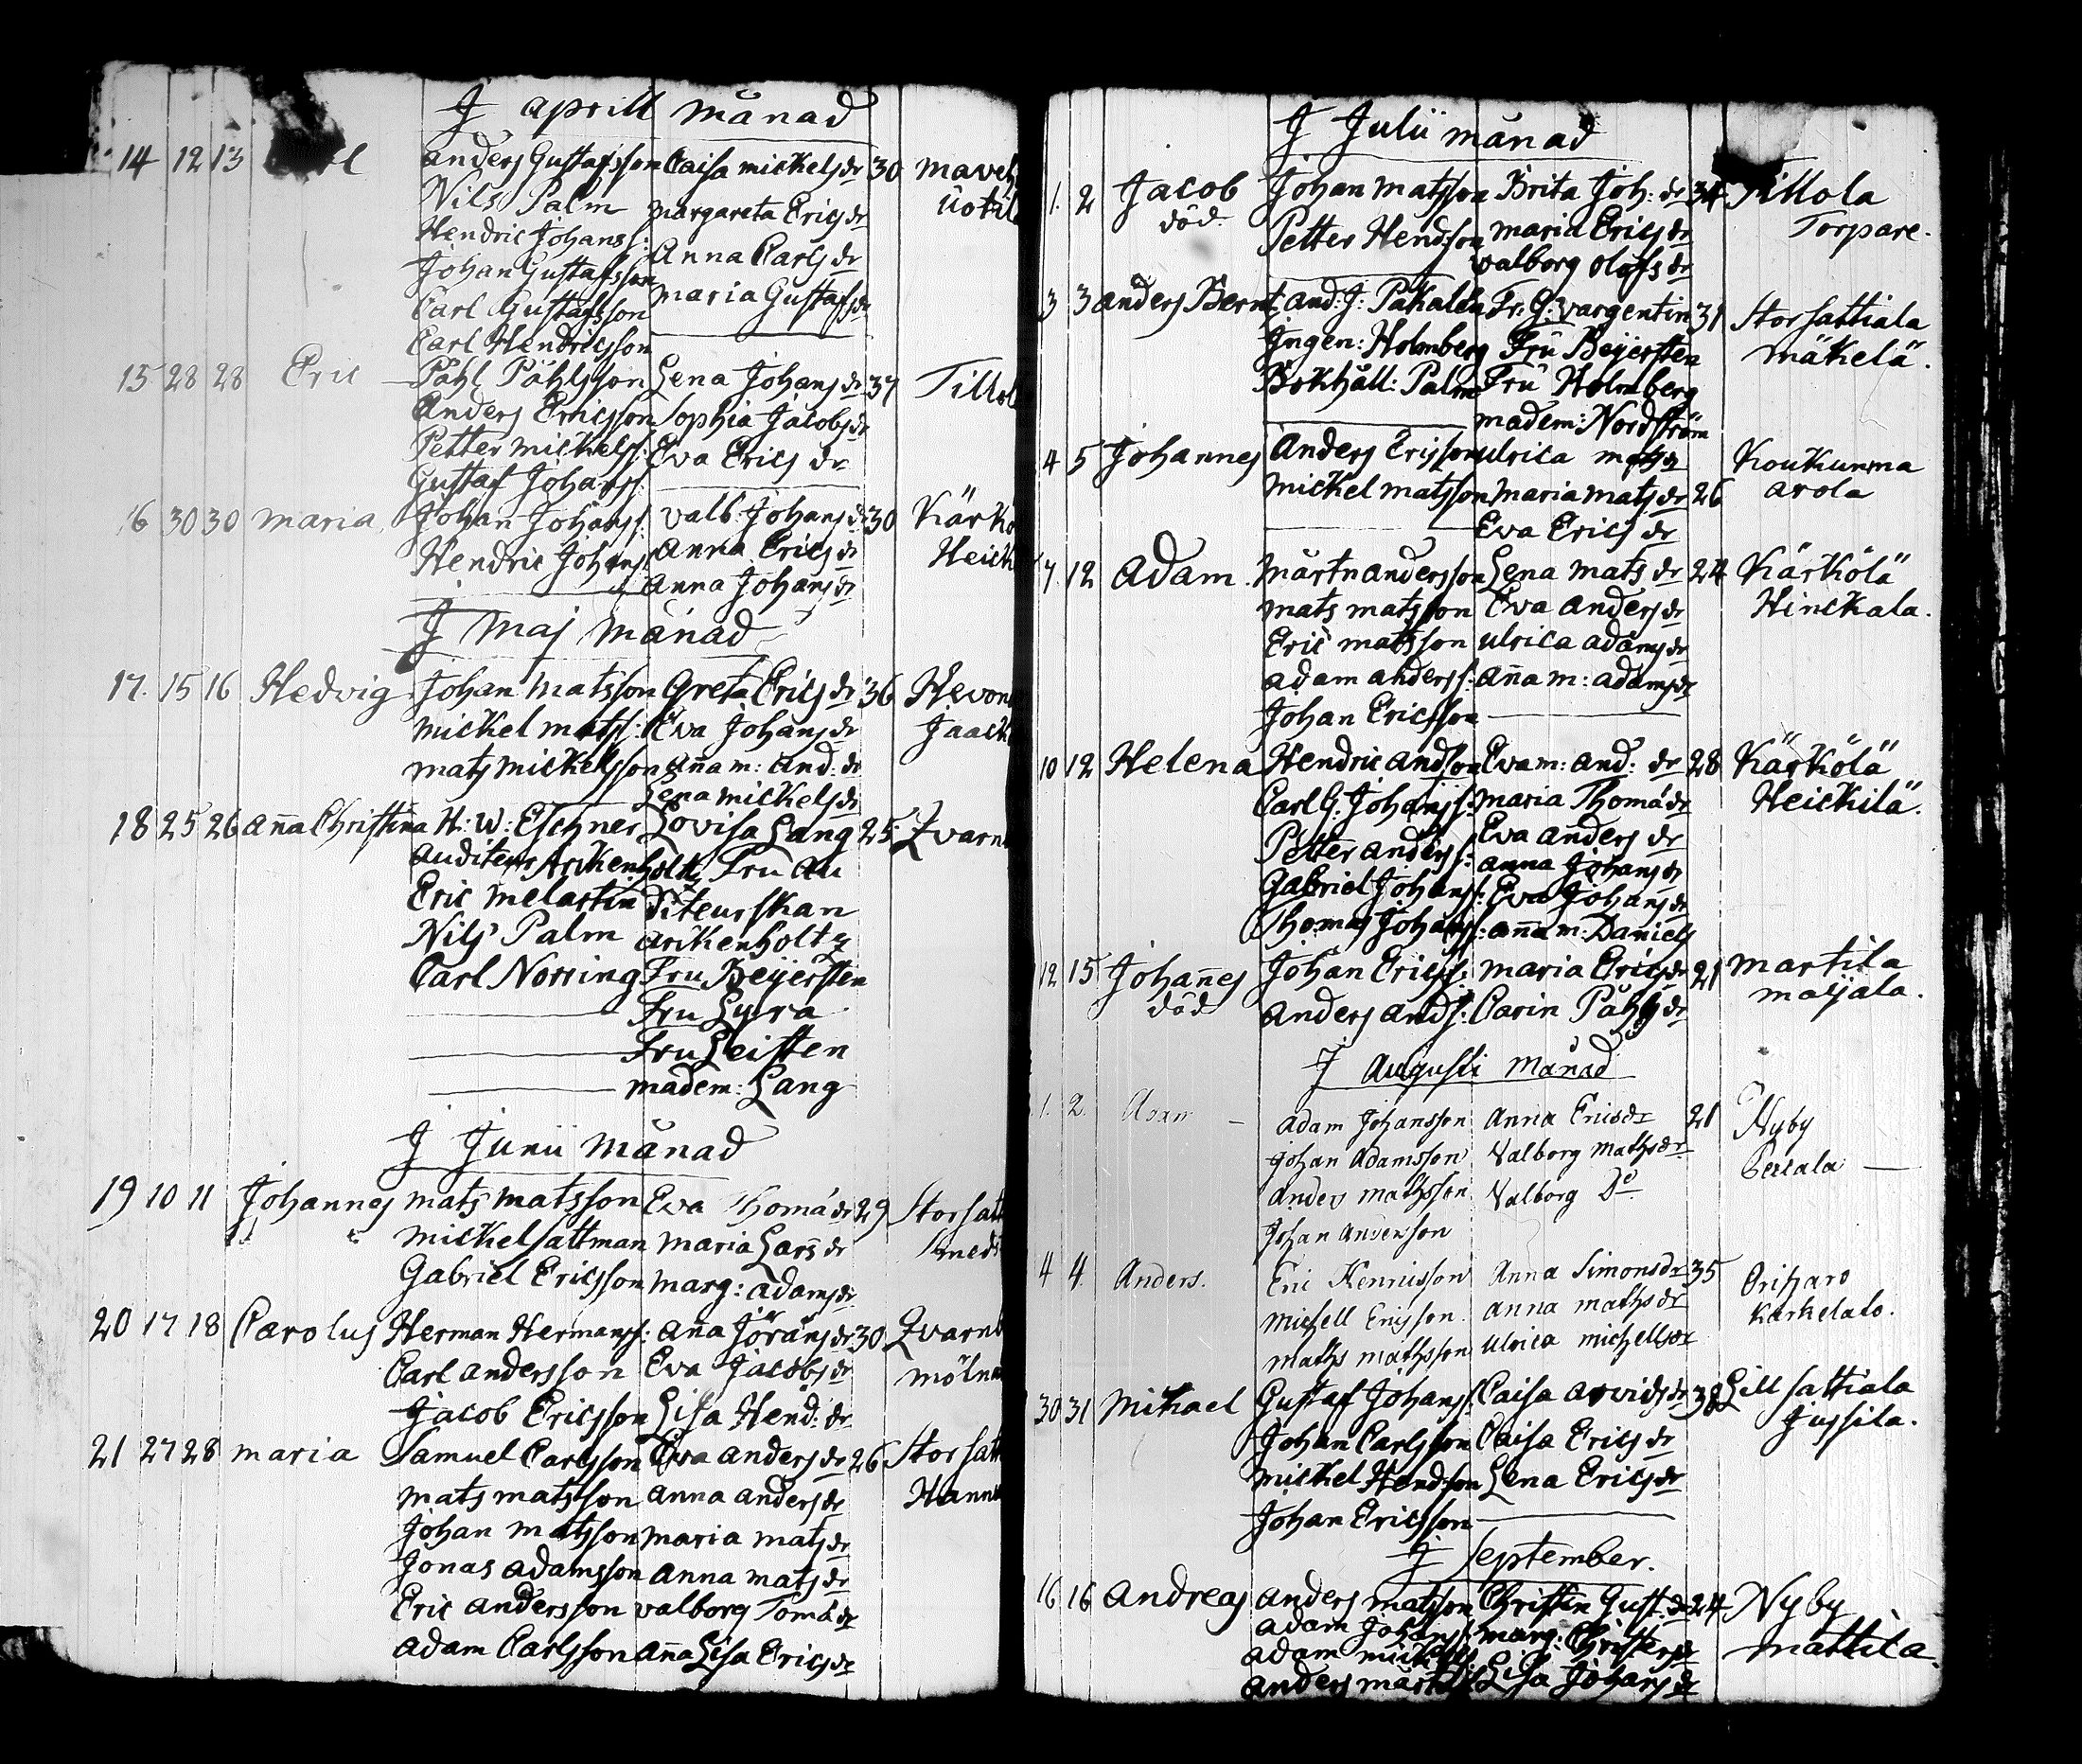 J aprill månad
14 12 13 anders Gustafsson Caisa mickels dr 30
Nils Palm margareta Erics dr
Hendric Johanss: Anna Carls dr
Johan Gustafsson maria Gustafs dr
Carl Gustafsson
Carl Hendricsson
15 28 28 Eric Påhl Påhlsson Lena Johans dr 37
Anders Ericsson Sophia Jacobs dr
Petter mickelss: Eva Erics dr
Gustaf Johanss:
16 30 30 maria Johan Johanss: valb: Johans dr 30
Hendric Johanss: Anna Erics dr
Anna Johans dr
J maj månad
17. 15 16 Hedvig Johan matsson Greta Erics dr 36
mickel matss: Eva Johans dr
mats mickelsson aña m: and: dr
Lena mickels dr
18 25 26 aña Christina H: W: Eschner Lovisa Lang 25
auditeur Arkenholtz Fru au
Eric melartin diteurskan
Nils Palm arkenholtz
Carl Norring Fru Beijersten
Fru Lyra
Fru Leisten
madem: Lang
J Junii månad
19 10 11 Johannes mats matsson Eva Thomæ dr 29
mickel sattman maria Lars dr
Gabriel Ericsson marg: adams dr
20 17 18 Carolus Herman Hermanss: aña Jörans dr 30
Carl andersson Eva Jacobs dr
Jacob Ericsson Lisa Hend: dr
21 27 28 maria Samuel Carlsson Eva anders dr 26
mats matsson anna anders dr
Johan matsson maria mats dr
Jonas adamsson anna mats dr
Eric andersson valborg Tomæ dr
adam Carlsson aña Lisa Erics dr
J Julii månad
1. 2 Jacob Johan matsson Brita Joh: dr 34 Tillola
död Petter Hendsson maria Erics dr Torpare.
valborg olofs dr
3 3 anders Bernt and: J: Pakalén Fr: G: vargentin 31 Storsattiala
Ingen: Holmberg Fru Beijersten mäkelä.
Bokhåll: Palm Fru Holmberg
madem: Nordström
4 5 Johannes Anders Ericsson ulrica mats dr Koukunma
mickel matsson maria mats dr 26 arola
Eva Erics dr
7. 12 Adam mårtn andersson Lena mats dr 24 Kärkölä
mats matsson Eva anders dr Hinckala.
Eric matsson ulrica adams dr
adam anderss: aña m: adams dr
Johan Ericsson
10 12 Helena Hendric andsson Eva m: and: dr 28 Kärkölä
Carl G: Johanss: maria Thomæ dr Heickilä.
Petter anderss: Eva anders dr
anna Johans dr
Gabriel Johanss: Eva Johans dr
Thomas Johanss: aña m: Daniels
12 15 Johañes Johan Ericss: maria Erics dr 21 martila
död anders ands: Carin Påhls dr maijala.
J Augusti månad
1. 2. Adam Adam Johansson Anna Erisdr 21 Nyby
Johan Adamsson Valborg Mathsdr
Anders Mathsson Valborg Do
Johan Andersson
4 4. Anders. Eric Henricsson Anna Simonsdr 35
Michell Ericsson Anna Mathsdr
Maths Mathsson Ulrica Michellsdr
30 31 Mikael Gustaf Johanss: Caisa arvids dr 38 Lill sattiala
Johan Carlsson Caisa Erics dr Jussila.
mickel Hendsson Lena Erics dr
Johan Ericsson
J September.
16 16 Andreas anders matsson Christin Gust: dr 24 Nyby
adam Johanss: marg: Christers dr mattila.
adam
anders Lisa Johans dr